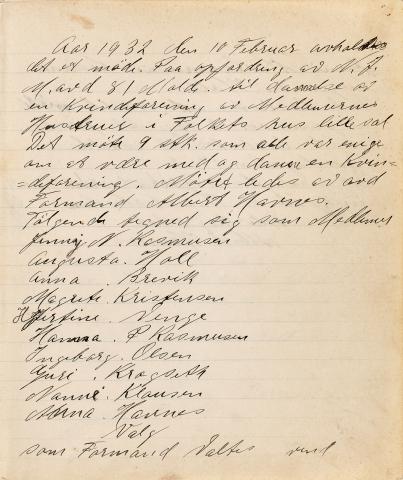 Aar 1932 den 10 Februar avholdtes
det et møde. Paa opfordring av N. J.
M. avd 81 Molde. til dannelse av
en Kvindeforening av Medlemernes
Hustruer i Folkets hus lille sal
Det møte 9 stk. som alle var enige
om at være med og danne en Kvin=
=deforening. Møtet ledes av avd
Formand Albert Havnes.
Følgende tegned sig som Medlemer
Jenny N. Rasmussen
Augusta. Moll
Anna. Brevik
Magrete. Kristensen
Hjertine. Venge
Hanna. P Rasmusen
Ingeborg. Olsen
Guri. Krogseth
Nanna. Klausen
Anna. Havnes
Valg
som Formand Valtes ved